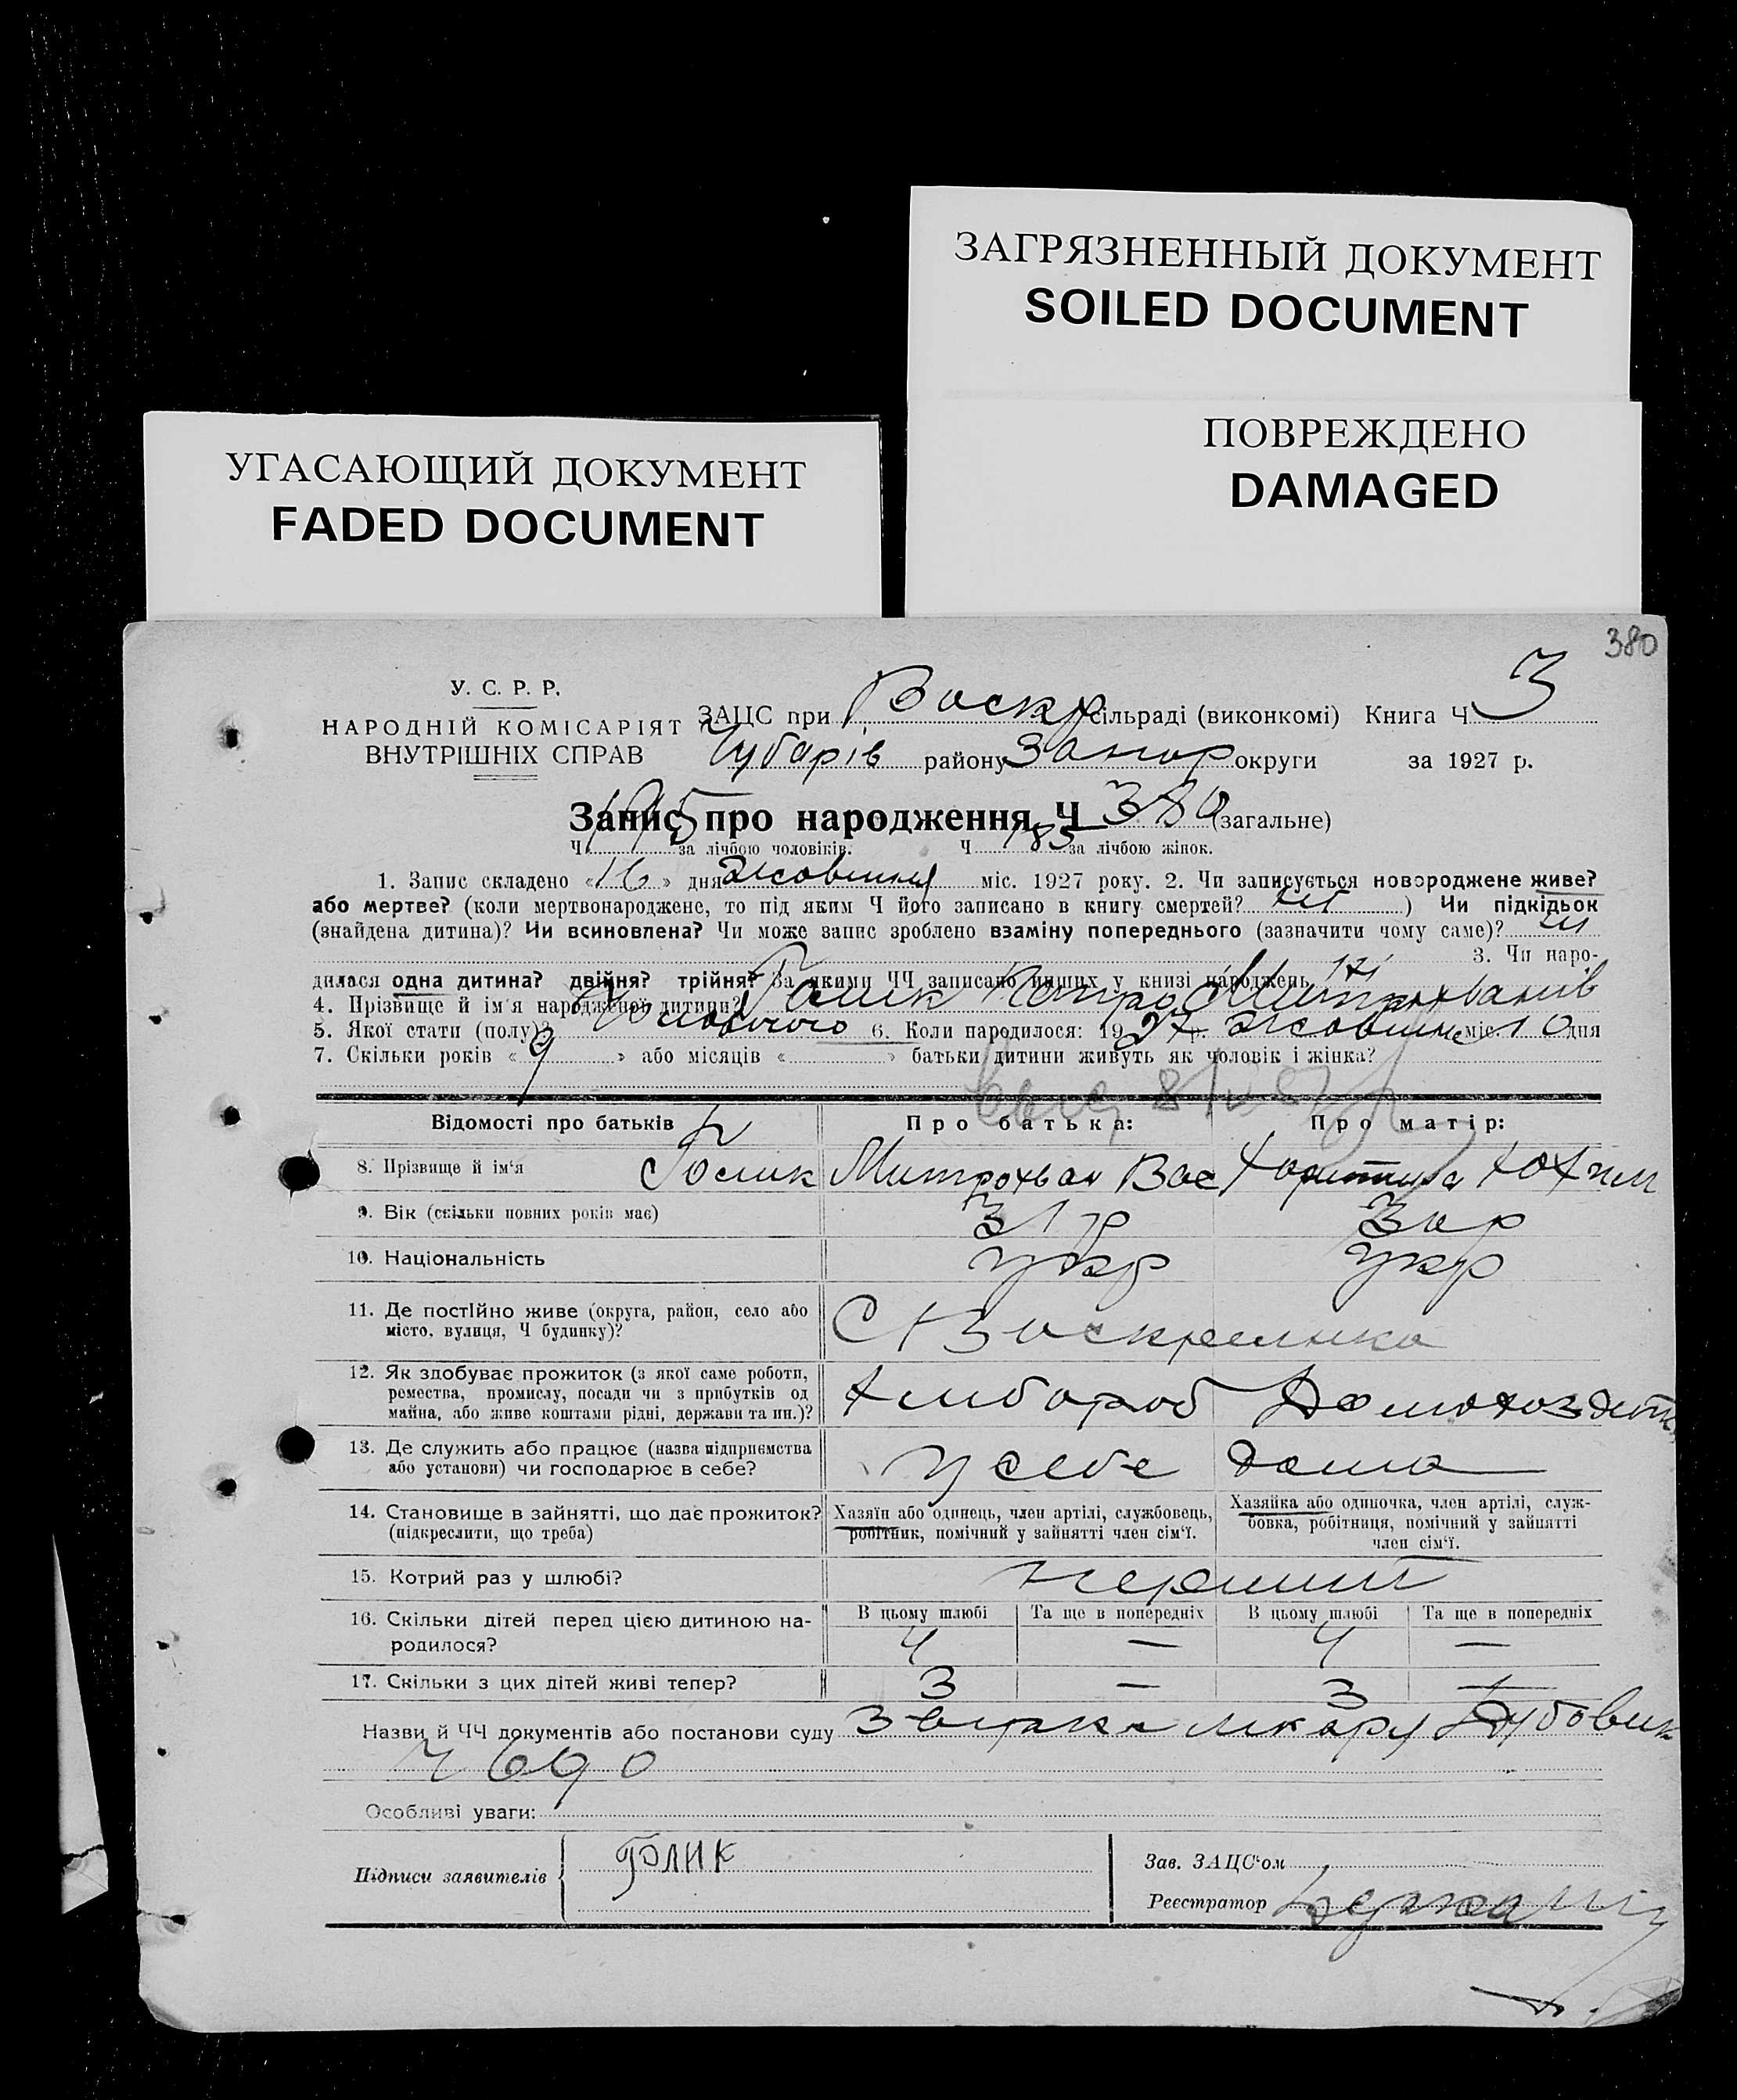 ЗАГРЯЗНЕННЫЙ ДОКУМЕНТ
SOILED DOCUMENT
ПОВРЕЖДЕНО
DAMAGED
УГАСАЮЩИЙ ДОКУМЕНТ
FADED DOCUMENT
380
У. С. Р. Р.
НАРОДНІЙ КОМІСАРІЯТ
ВНУТРІШНІХ СПРАВ
ЗАЦС при Воскр сільраді (виконкомі) Книга Ч 3
Чубарів району Запор округи за 1927 р.
Запис про народження Ч 380 (загальне)
Ч 195 за лічбою чоловіків. Ч 185 за лічбою жінок.
1. Запис складено «16» дня Жовтня міс. 1927 року. 2. Чи записується новороджене живе?
або мертве? (коли мертвонароджене, то під яким Ч його записано в книгу смертей? ) Чи підкідьок
(знайдена дитина)? Чи всиновлена? Чи може запис зроблено взаміну попереднього (зазначити чому саме)?
3. Чи наро-
дилася одна дитина? двійня? трійня? За якими ЧЧ записано инших у книзі народжень
4. Прізвище й ім'я народженої дитини? Голик Петро Митрохванів
5. Якої стати (полу)? Чоловічого 6. Коли народилося: 1927 р. Жовтня міс. 10 дня
7. Скільки років «9» або місяців « » батьки дитини живуть як чоловік і жінка?
Відомості про батьків
Про батька: Про матір:
8. Прізвище й ім'я Голик Митрохван Вас Хоритина Юхим
9. Вік (скільки повних років має) 31 р 30 р
10. Національність укр укр
11. Де постійно живе (округа, район, село або
місто, вулиця, Ч будинку)? С Воскресенка
12. Як здобуває прожиток (з якої саме роботи,
ремества, промислу, посади чи з прибутків од
майна, або живе коштами рідні, держави та ин.)? Хлібороб Домохоз
13. Де служить або працює (назва підприємства
або установи) чи господарює в себе? У себе дома
14. Становище в зайнятті, що дає прожиток?
(підкреслити, що треба)
Хазяїн або одинець, член артілі, службовець,
робітник, помічний у зайнятті член сім'ї.
Хазяйка або одиночка, член артілі, служ-
бовка, робітниця, помічний у зайнятті
член сім'ї.
15. Котрий раз у шлюбі? перший
16. Скільки дітей перед цією дитиною на-
родилося?
В цьому шлюбі Та ще в попередніх В цьому шлюбі Та ще в попередніх
4 — 4 —
17. Скільки з цих дітей живі тепер? 3 — 3 —
Назви й ЧЧ документів або постанови суду лікаря Дубовик
Ч 690
Особливі уваги:
Підписи заявителів Голик
Зав. ЗАЦС'ом
Реєстратор